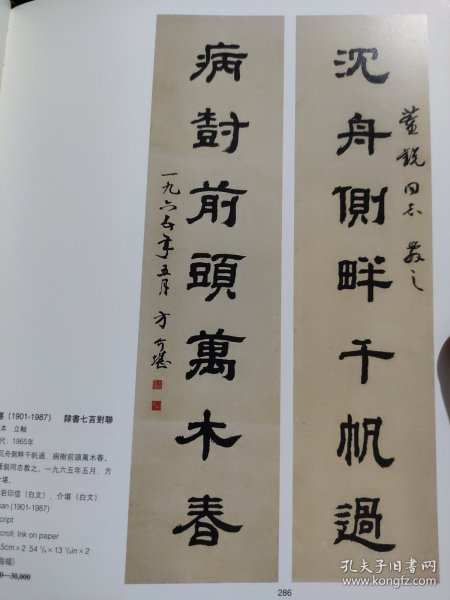 沉舟側畔千帆過
銳同志 教之
病樹前頭萬木春
一九六五年五月 方介堪
堪（1901-1987） 隸書七言對聯
本 立軸
代．1965年
沉舟側畔千帆過．病樹前頭萬木春。
銳同志教之。一九六五年五月．方
介堪。
若印信（白文）、介堪（白文）
san (1901-1987)
cript
croll; Ink on paper
5cm×2 54 × 13 in×2
每幅)
0—30,000
286
孔夫子旧书网